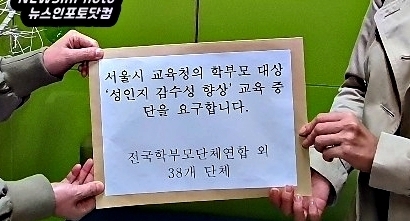 NEWSinPhoto
뉴스인포토닷컴
서울시 교육청의 학부모 대상
‘성인지 감수성 향상’ 교육 중
단을 요구합니다.
전국학부모단체연합 외
38개 단체